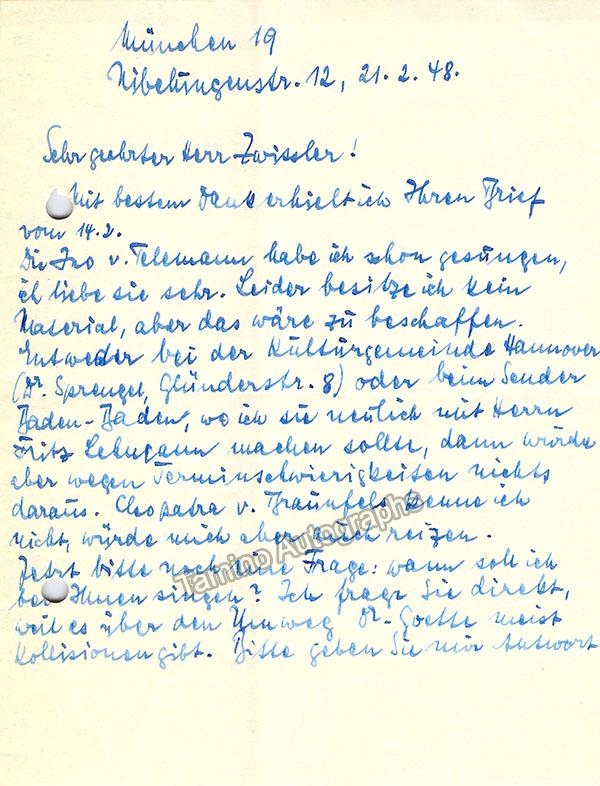 München 19
Nibelungenstr. 12, 21. 2. 48.
Sehr geehrter Herr Zwissler!
Mit bestem Dank erhielt ich Ihren Brief
vom 14.2.
Die Ino v. Telemann habe ich schon gesungen,
ich liebe sie sehr. Leider besitze ich kein
Material, aber das wäre zu beschaffen.
Entweder bei der Kulturgemeinde Hannover
(Dr. Sprengel, Glünderstr. 8) oder beim Sender
Baden-Baden, wo ich sie neulich mit Herrn
Fritz Lehmann machen sollte, dann wurde
aber wegen Terminschwierigkeiten nichts
daraus. Cleopatra v. Braunfels kenne ich
nicht, würde mich aber auch reizen.
Jetzt bitte noch eine Frage: wann soll ich
bei Ihnen singen? Ich frage Sie direkt,
weil es über den Umweg Dr. Goette meist
Kollisionen gibt. Bitte geben Sie mir Antwort
Tamino Autographs